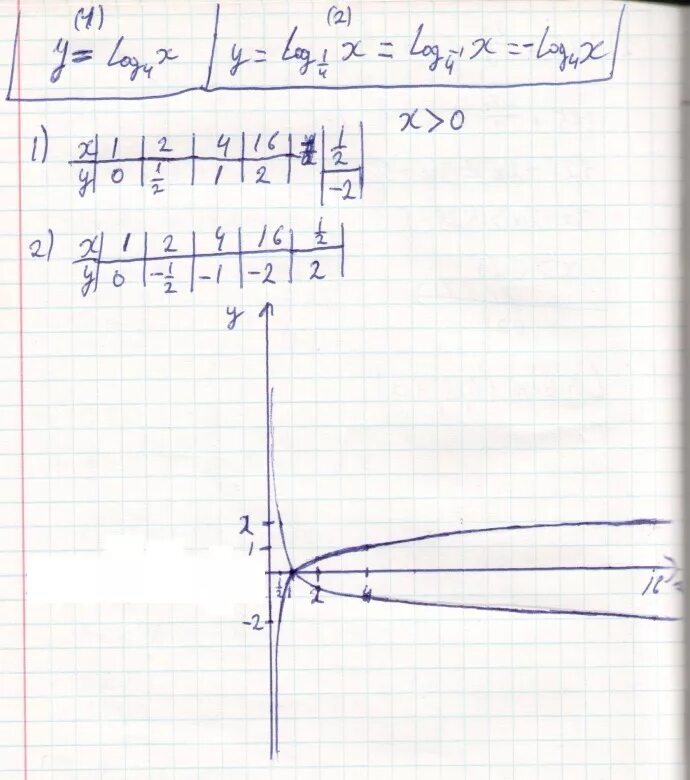 (1) (2)
y = log₄x | y = log_{1/4} x = log_{4⁻¹} x = -log₄x
x > 0
1) x | 1 | 2 | 4 | 16 | | 1/2
y | 0 | 1/2 | 1 | 2 | | -2
2) x | 1 | 2 | 4 | 16 | 1/2
y | 0 | -1/2 | -1 | -2 | 2
y
2
1
1/2 1 2 4 16
-2